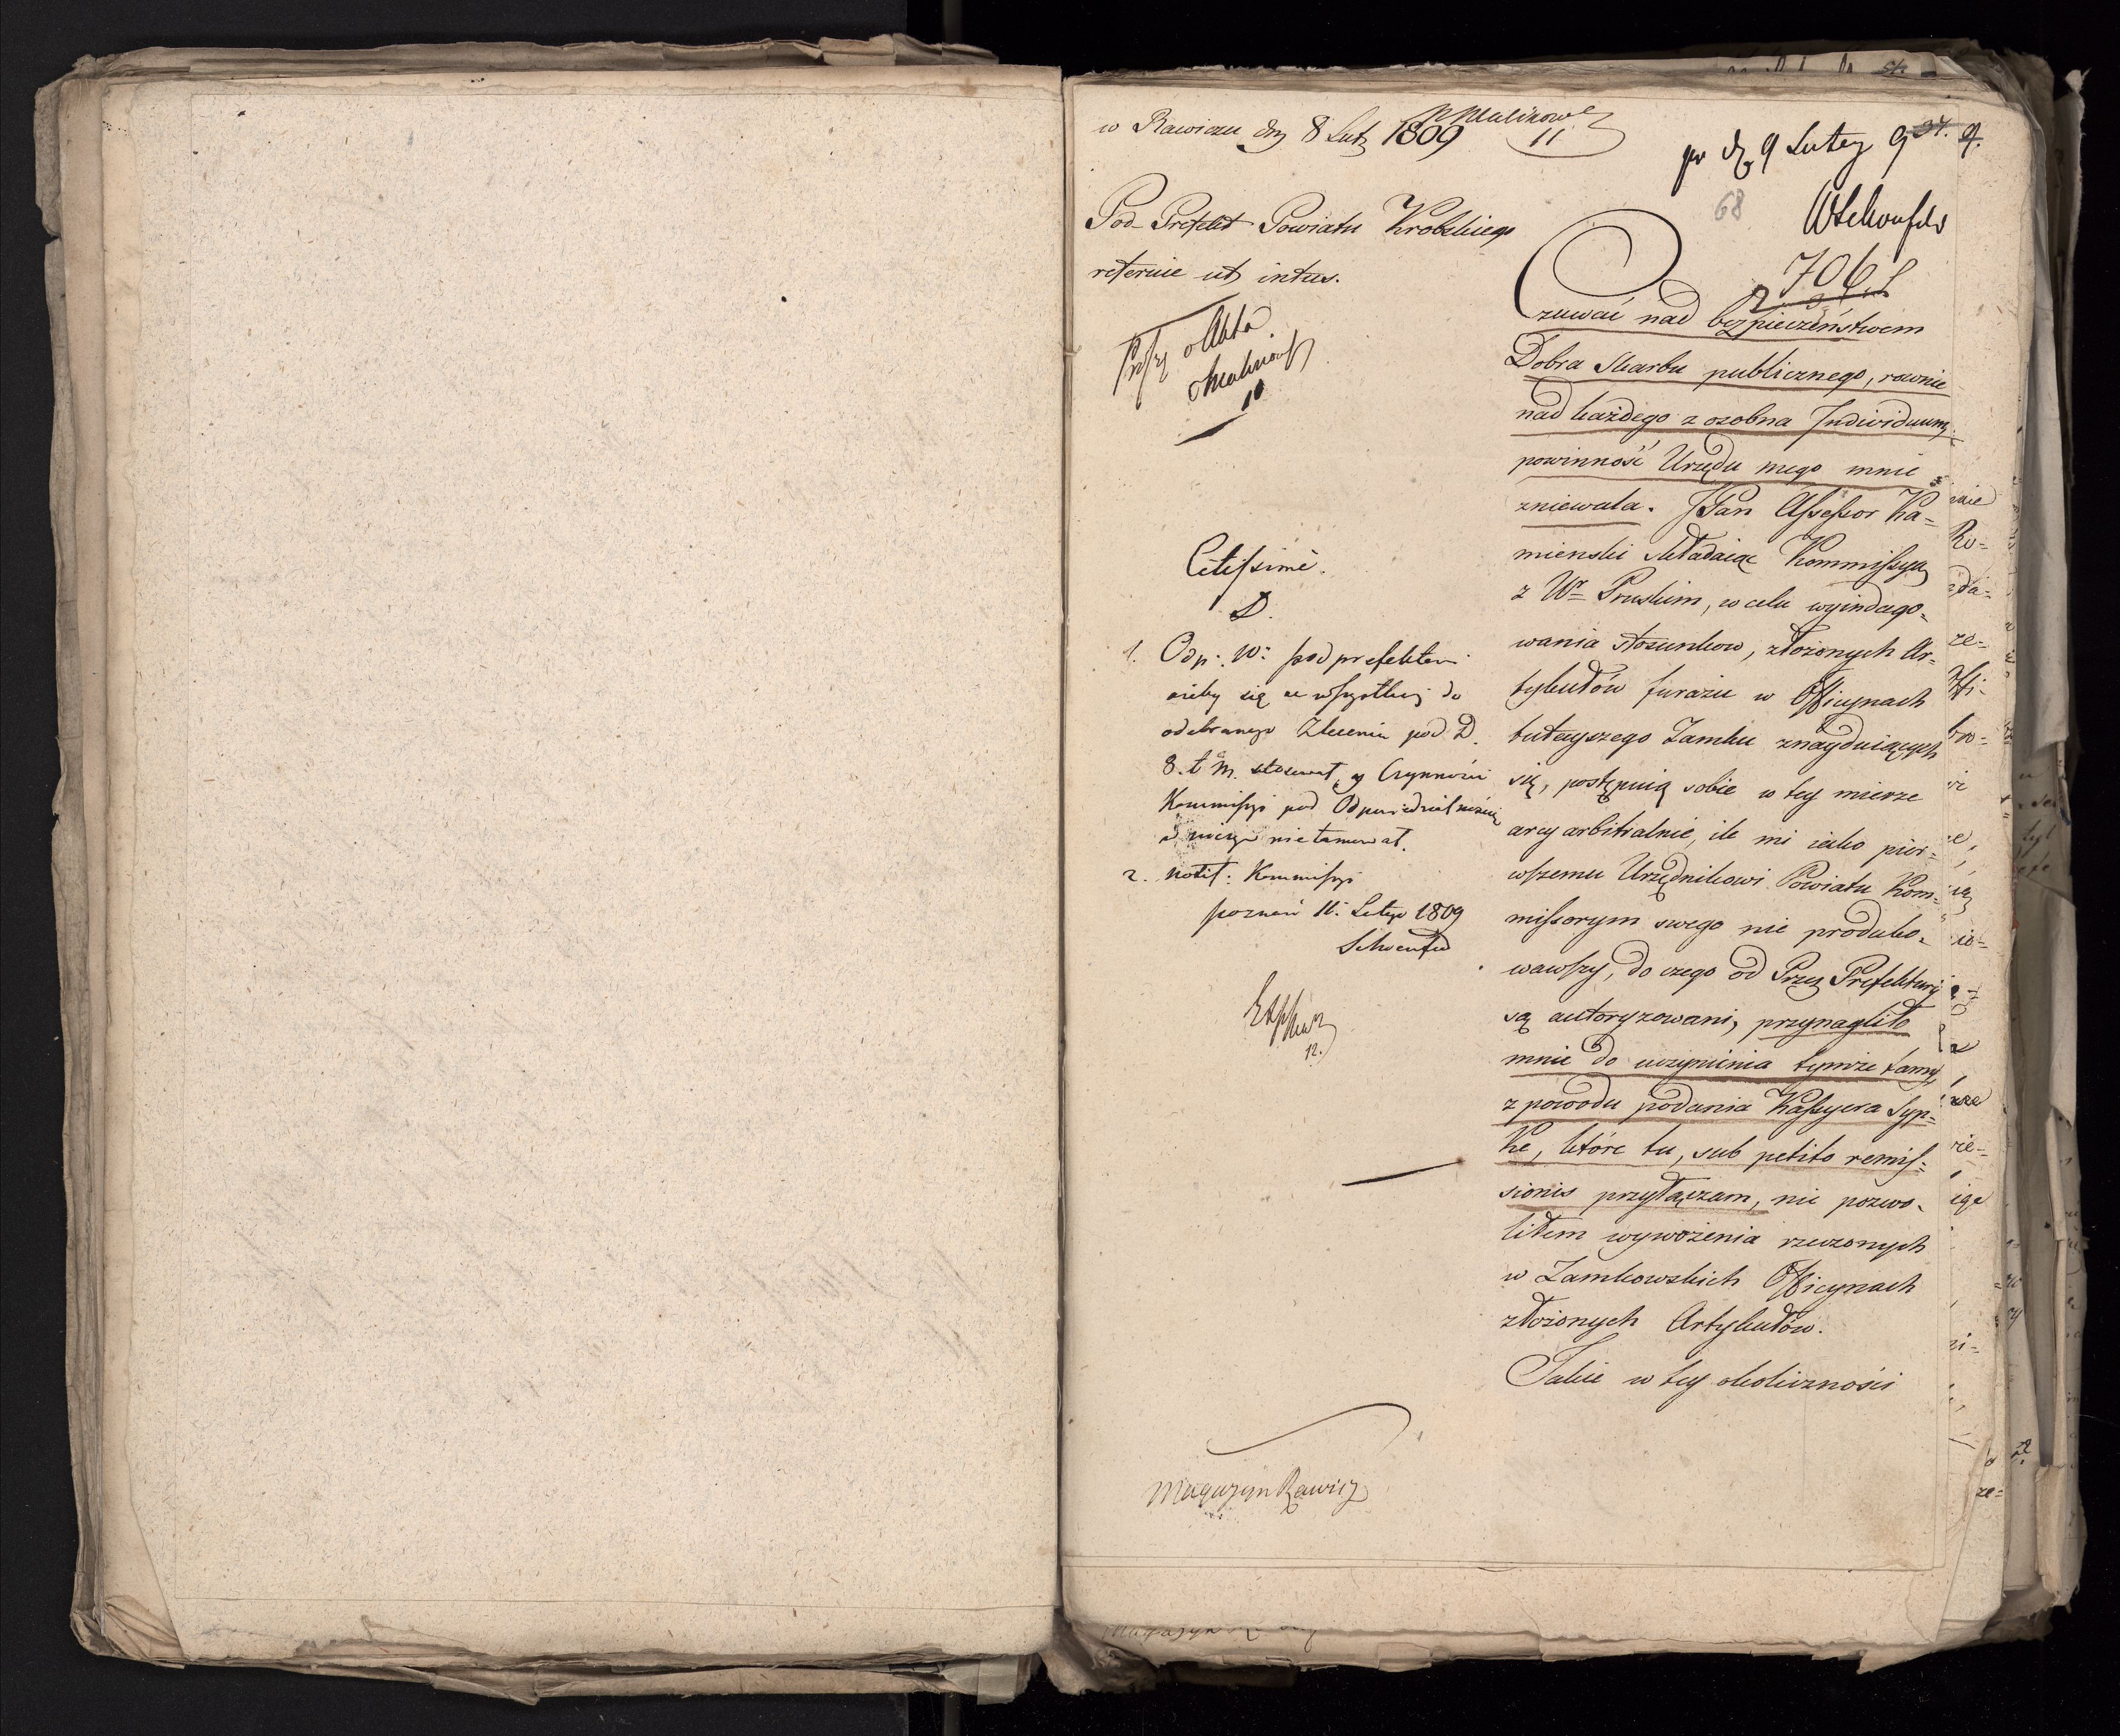 w Rawiczu dnia 8 Lut. 1809
11
pr d. 9 Lutego 9
68
706
Pod-Prefekt Powiatu Krobskiego
referuie ut intus.
Akta
10
Citissime.
D.
1. Odp: W: podprefektowi
ażeby się we wszystkiey do
odebranego Zlecenia pod D.
8. t. m. stosował, y Czynności
Kommissyi pod Odpowiedzialnością
w niczym nie tamował.
2. notif: Kommissyi
poznań 11: Lutego 1809
Schoenfeld
12.
Magazyn Rawicz
Czuwać nad bezpieczeństwem
Dobra Skarbu publicznego, rownie
nad każdego z osobna Indiwiduum,
powinność Urzędu mego mnie
zniewala. JPan Assessor Ka=
mienski składaiąc Kommissyą
z Wm Pruskim, w celu wyindago=
wania stosunkow, złożonych Ar=
tykułów furażu w Officynach
tuteyszego Zamku znayduiących
się, postępuią sobie w tey mierze
arcy arbitralnie, ile mi iako pier=
wszemu Urzędnikowi Powiatu Kom=
missorym swego nie produko=
wawszy, do czego od Prześ Prefektury
są autoryzowani, przynagliło
mnie do uczynienia tymże tamy,
z powodu podania Kassyera Syp=
ke, które tu, sub petito remis=
sionis przyłączam, nie pozwo=
liłem wywożenia rzeczonych
w Zamkowskich Officynach
złożonych Artykułów.
Takie w tey okoliczności